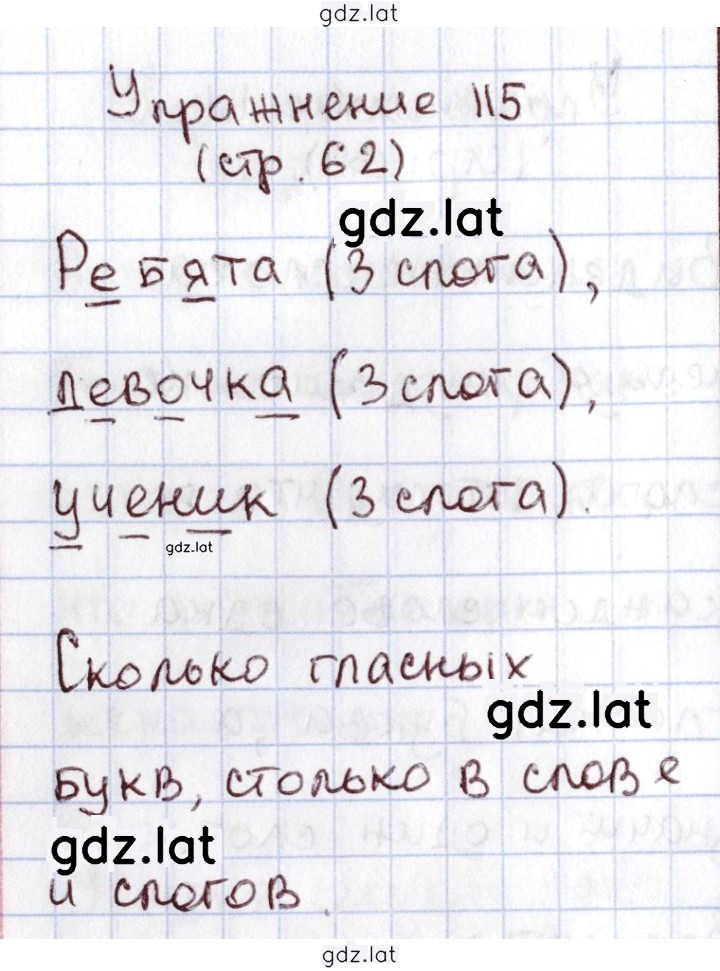 gdz.lat
Упражнение 115
(стр. 62)
gdz.lat
Ребята (3 слога),
девочка (3 слога),
ученик (3 слога).
gdz.lat
Сколько гласных
gdz.lat
букв, столько в слове
gdz.lat
и слогов.
gdz.lat